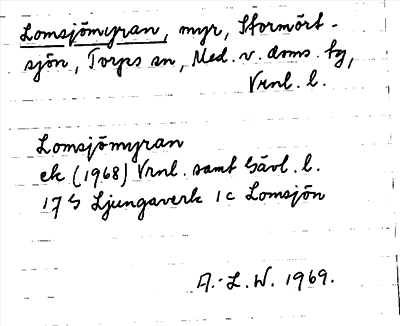 Lomsjömyran, myr, Stormört-
sjön, Torps sn, Med. v. doms. tg,
Vrnl. l.
Lomsjömyran
ek (1968) Vrnl. samt Gävl. l.
17 G Ljungaverk 1 c Lomsjön
A.-L. W. 1969.